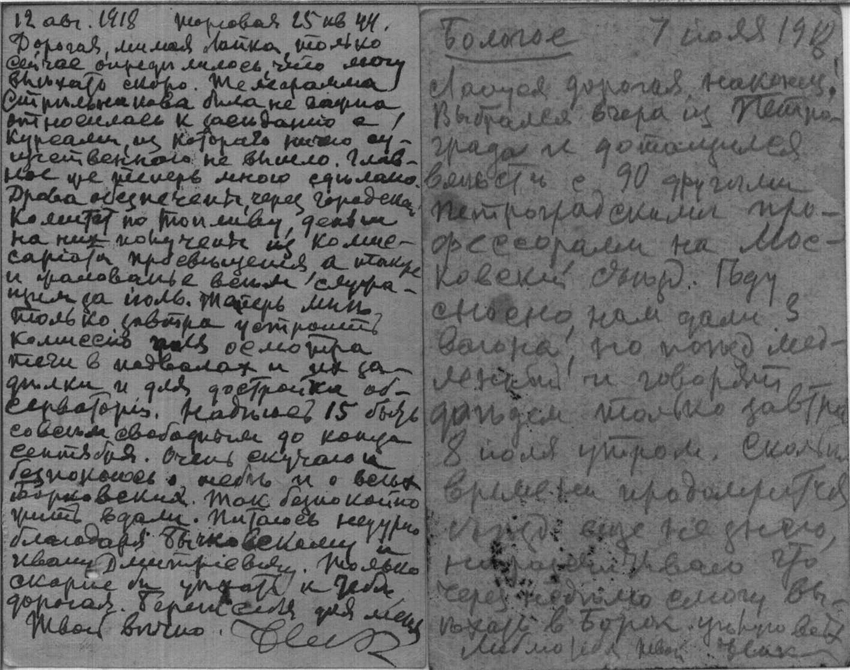 12 авг. 1918 Торговая 25 кв 44.
Дорогая, милая Лапка, только
сейчас определилось что могу
выехать скоро. Телеграмма
была не верна
относилась к заседанию в
из которого ничего су-
щественного не вышло. Глав-
ное же теперь много сделано.
Дрова обезпечены через городской
комитет по топливу, деньги
на них получены из комис-
сариата просвещения а также
и жалованье всем служа-
щим за июль. Теперь мне
только завтра устроить
комиссию для осмотра
течи в подвалах и их за-
делки и для достройки об-
серваторiи. Надеюсь 15 быть
совсем свободным до конца
сентября. Очень скучаю и
безпокоюсь о тебе и о всех
Борковских. Так безпокойно
жить вдали. Питаюсь недурно
благодаря Бычковскому и
Ивану Дмитрiевичу. Только
скорее бы уехать к тебе,
дорогая. Береги себя для меня
Твой вечно.
Бологое 7 июля 1918
Лапуся дорогая, наконец!
Выбрался вчера из Петро-
града и дотащился
вместе с 90 другими
Петроградскими про-
фессорами на Мос-
ковский съезд. Еду
сносно, нам дали 3
вагона, но поезд мед-
ленный и говорят
доедем только завтра
8 июля утром. Сколько
времени продолжится
съезд еще не знаю,
но разсчитываю что
через неделю смогу вы-
ехать в Борок. Целую всех
твой